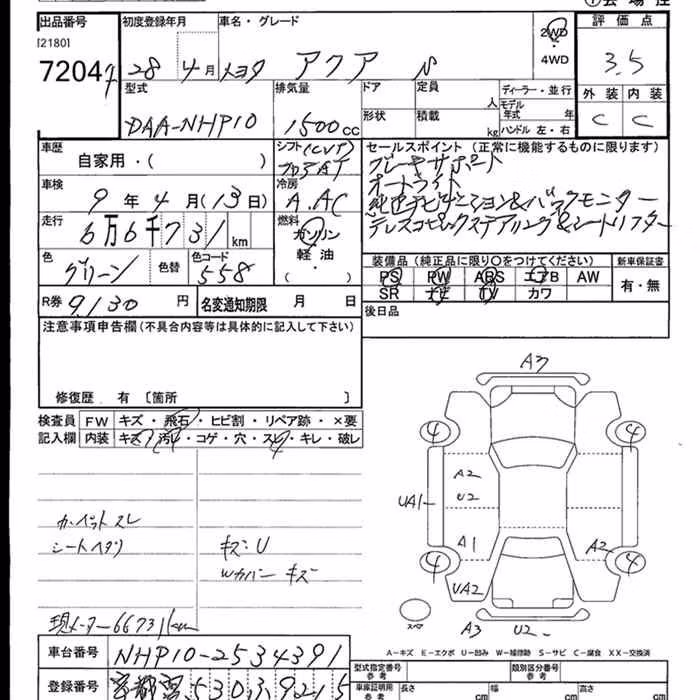 出品番号
[2180]
7204
初度登録年月
28年 4月
車名・グレード
トヨタ アクア N
2WD
4WD
評価点
3.5
外装 内装
C C
型式
DAA-NHP10
排気量
1500cc
ドア
定員
人
形状
積載
kg
ディーラー・並行
モデル年式 年
ハンドル 左・右
車歴
自家用・( )
シフト (CVT)
フロアAT
車検
9年 4月 (13日)
冷房
A.AC
走行
6万6千731km
燃料
ガソリン
軽油
( )
色
グリーン
色替
色コード
558
R券
9,130円
名変通知期限 月 日
セールスポイント(正常に機能するものに限ります)
ブレーキサポート
オートライト
純正ナビゲーション&バックモニター
テレスコピックステアリング&シートリフター
装備品(純正品に限り○をつけてください)
PS PW ABS エアB AW
SR ナビ TV カワ
新車保証書
有・無
後日品
注意事項申告欄(不具合内容等は具体的に記入して下さい)
修復歴 有 〔箇所 〕
検査員記入欄
FW キズ・飛石・ヒビ割・リペア跡・×要
内装 キズ・汚レ・コゲ・穴・スレ・キレ・破レ
カーペットスレ
シートヘタリ
キズ:U
Wカバー キズ
現メーター 66731km
A3
4 4
UA1
A2
U2
A1
A2
4 4
UA2
スペア
A3 U2
A-キズ E-エクボ U-凹み W-補修跡 S-サビ C-腐食 XX-交換済
車台番号
NHP10-2534391
登録番号
530 9215
型式指定番号
参考
類別区分番号
参考
車庫証明用
参考
長さ cm
幅 cm
高さ cm